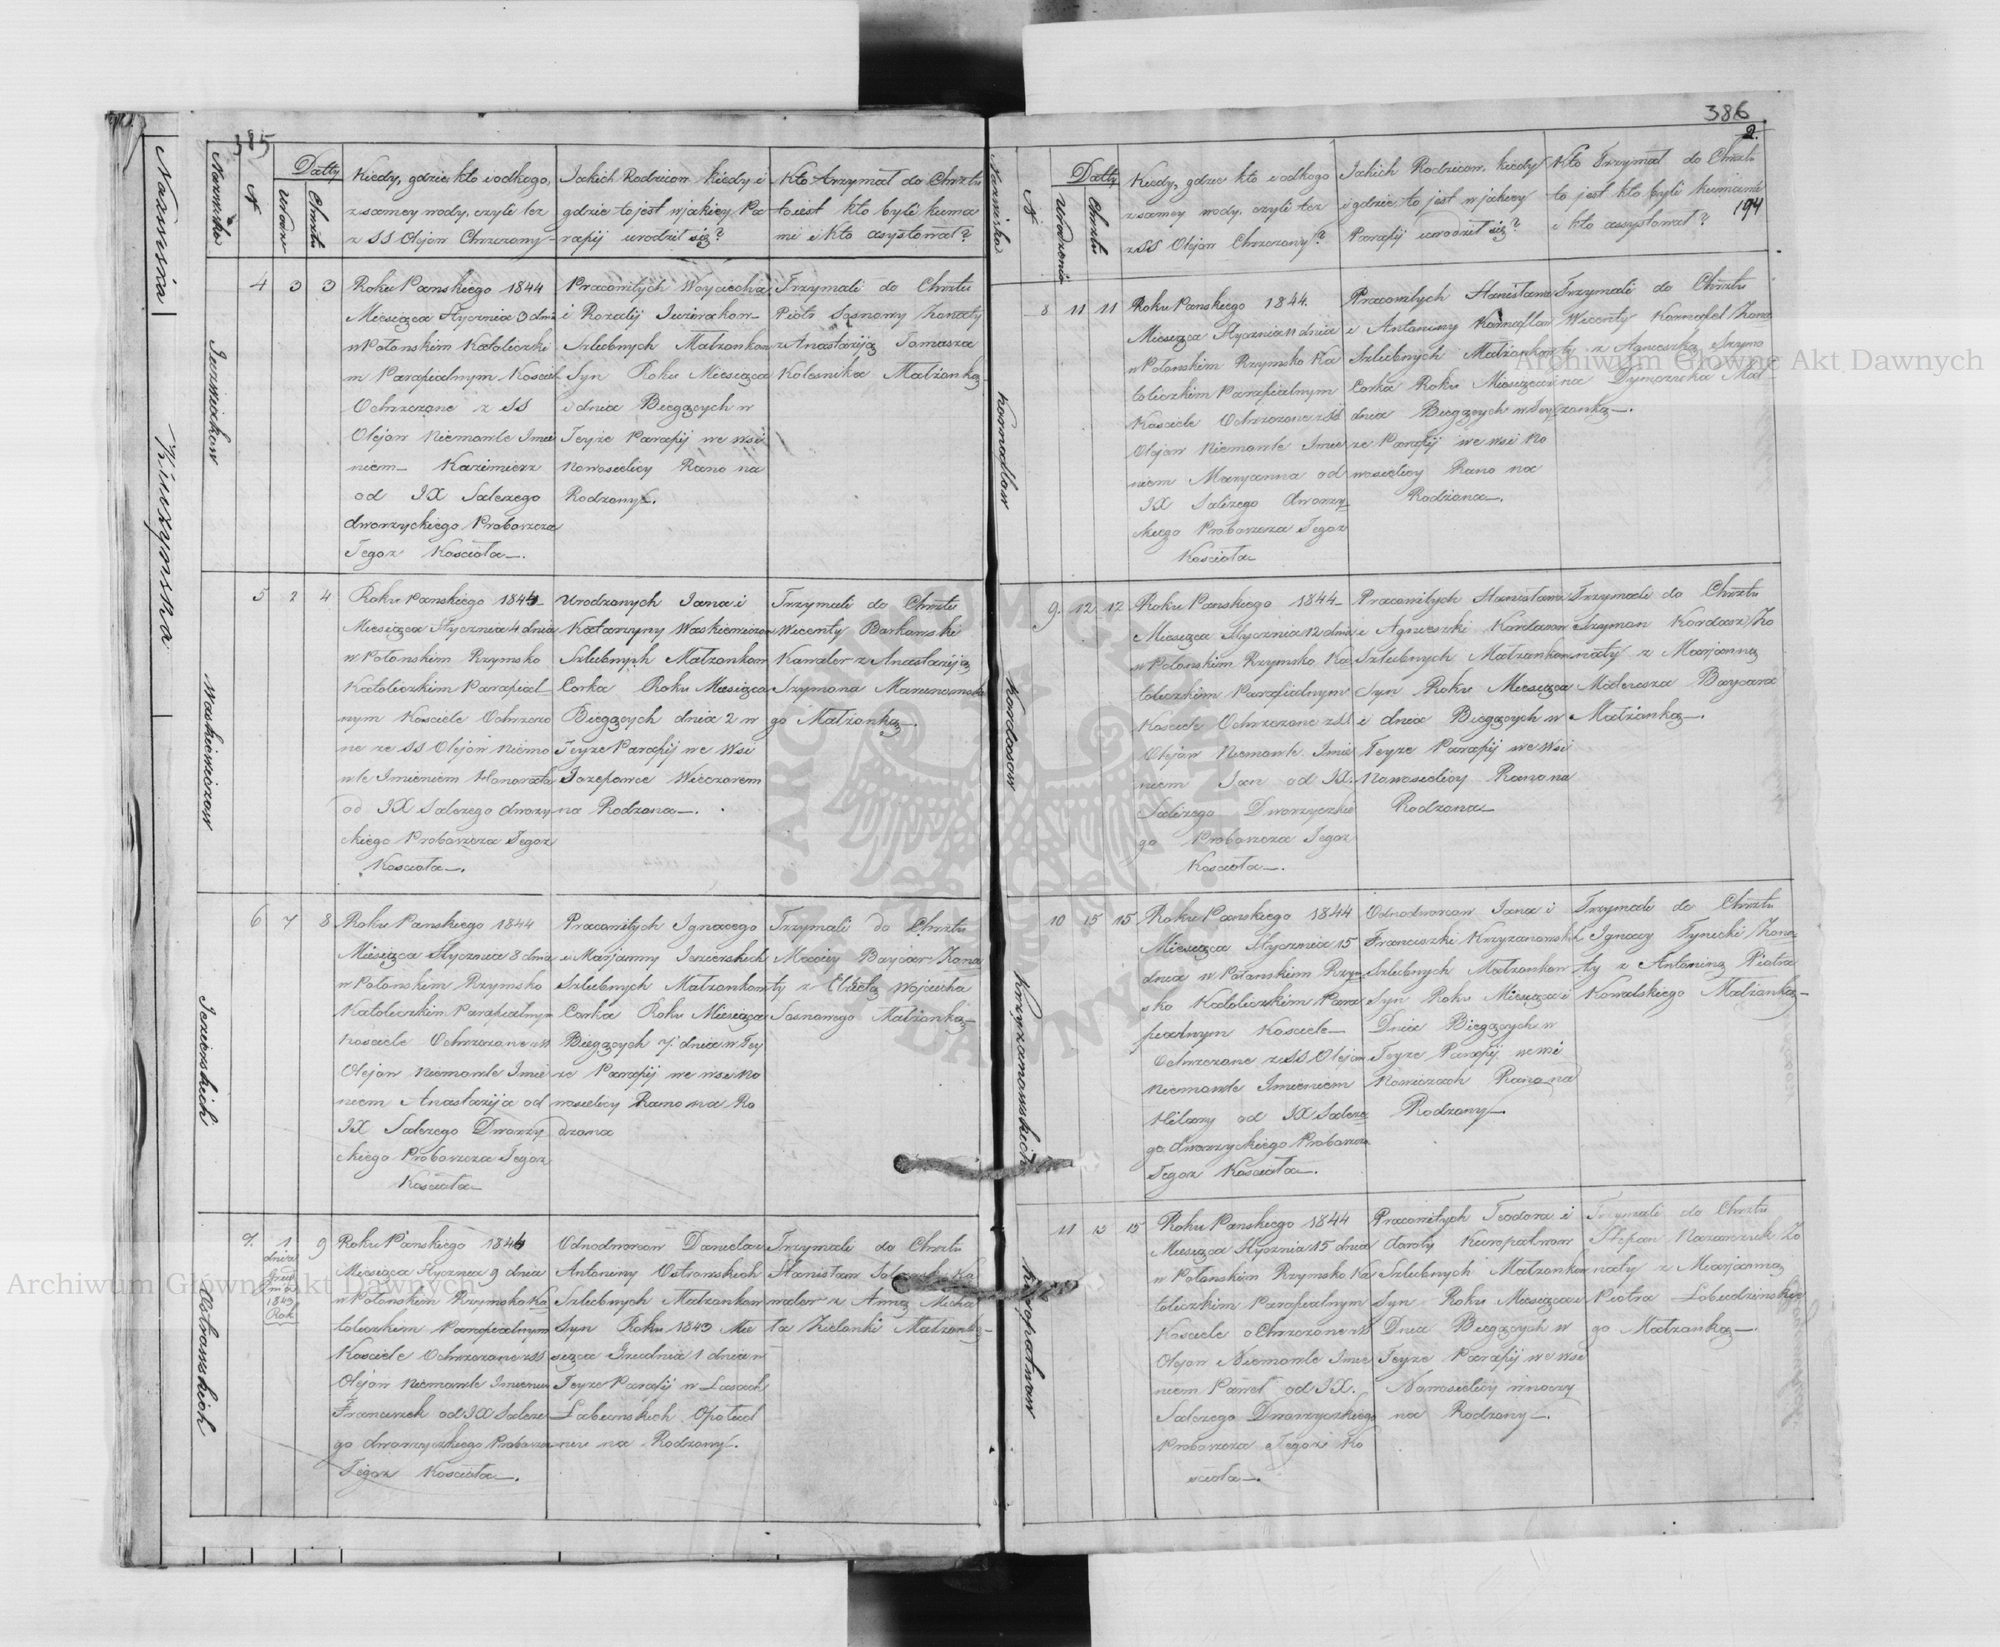 385
Nazwiska
N
Datty
Urodz
Chrztu
Kiedy, gdzie kto i odkogo,
z samey wody, czyli tez
z SS Olejow Chrzczony
Jakich Rodzicow kiedy i
gdzie to jest w jakiey Pa
rafij urodził się?
Kto trzymał do Chrztu
to iest kto byli kuma
mi i kto asystował?
4 3 3
Roku Panskiego 1844
Miesiąca Stycznia 3 dnia
w Połonskim Katolickim
m Parafialnym Kosciel
Ochrzczone z SS
Olejow Niemowle Imie
niem Kazimierz
od JX Salezego
dworzyckiego Proboszcza
Tegoz Koscioła.
Pracowitych Woyciecha
i Rozalij
Szlubnych Małzonkow
Syn Roku Miesiąca
i dnia Biegących w
Teyże Parafij we wsi
Nowosielicy Rano na
Rodzony.
Trzymali do Chrztu
Piotr Sosnowy Zonaty
z Anastazyią Tomasza
Kolesnika Małżonką
Waskiewiczow
5 2 4
Roku Panskiego 1844
Miesiąca Stycznia 4 dnia
w Połonskim Rzymsko
Katolickim Parafial
nym Kosciele Ochrzczo
ne ze SS Olejow Niemo
wle Imieniem Honorata
od JX Salezego dworzy
ckiego Proboszcza Tegoz
Koscioła.
Urodzonych Jana i
Katarzyny Waskiewiczow
Szlubnych Małzonkow
Corka Roku Miesiąca
Biegących dnia 2 w
Teyze Parafij we Wsi
Jozefowce Wieczorem
na Rodzona.
Trzymali do Chrztu
Wicenty Barkowski
Kawaler z Anastazyią
Szymona
go Małżonką.
Jezierskich
6 7 8
Roku Panskiego 1844
Miesiąca Stycznia 8 dnia
w Połonskim Rzymsko
Katolickim Parafialnym
Kosciele Ochrzczone z SS
Olejow Niemowle Imie
niem Anastazija od
JX Salezego Dworzy
ckiego Proboszcza Tegoz
Koscioła
Pracowitych Ignacego
i Marjanny Jezierskich
Szlubnych Małzonkow
Corka Roku Miesiąca
Biegących 7 dnia w Tey
ze Parafij we wsi No
wosielicy Rano na Ro
dzona
Trzymali do Chrztu
Maciey Baycar Zona
ty z Elzbietą Wojciecha
Sosnowego Małżonką
Ostrowskich
7. 1 dnia Grud nia 1843 Rok 9
Roku Panskiego 1844
Miesiąca Stycznia 9 dnia
w Połonskim Rzymsko Ka
tolickim Parafialnym
Kosciele Ochrzczone z SS
Olejow Niemowle Imieniem
Franciszek od JX Saleze
go dworzyckiego Proboszcza
Tegoz Koscioła.
Odnodworcow Daniela i
Antoniny Ostrowskich
Szlubnych Małzonkow
Syn Roku 1843 Mie
siąca Grudnia 1 dnia w
Teyze Parafij w Lasach
Labunskich Opołud
niu na Rodzony.
Trzymali do Chrztu
Stanisław Ka
waler z Anną Micha
ła Zielonki Małzonką
386
2.
194
Nazwiska
N
Datty
Urodzenia
Chrztu
Kiedy, gdzie kto i odkogo
z samey wody, czyli tez
z SS Olejow Chrzczony?
Jakich Rodzicow, kiedy
i gdzie to jest w jakiey
Parafij urodził się?
Kto Trzymał do Chrztu
to jest kto byli kumami
i kto assystował?
Kornaflow
8 11 11
Roku Panskiego 1844.
Miesiąca Stycznia 11 dnia
w Połonskim Rzymsko Ka
tolickim Parafialnym
Kosciele Ochrzczone z SS
Olejow Niemowle Imie
niem Maryanna od
JX Salezego dworzy
ckiego Proboszcza Tegoz
Koscioła
Pracowitych Stanisława
i Antoniny Kornaflow
Szlubnych Małzonkow
Corka Roku Miesiąca i
dnia Biegących w Tey
ze Parafij we wsi No
wosielicy Rano na
Rodzona.
Trzymali do Chrztu
Wicenty Kornafel Zona
ty z Agnieszką Szymo
na Małzonką.
Kordasow
9. 12 12
Roku Panskiego 1844
Miesiąca Stycznia 12 dnia
w Połonskim Rzymsko Ka
tolickim Parafialnym
Kosciele Ochrzczone z SS
Olejow Niemowle Imie
niem Jan od JX.
Salezego Dworzyckie
go Proboszcza Tegoz
Koscioła.
Pracowitych Stanisława
i Agnieszki Kordasow
Szlubnych Małzonkow
Syn Roku Miesiąca
i dnia Biegących w
Teyze Parafij we Wsi
Nowosielicy Rano na
Rodzona
Trzymali do Chrztu
Szymon Kordasz Zo
naty z Marjanną
Mateusza Baycara
Małżonką.
Krzyzanowskich
10 15 15
Roku Panskiego 1844
Miesiąca Stycznia 15
dnia w Połonskim Rzym
sko Katolickim Para
fialnym Kosciele
Ochrzczone z SS Olejow
Niemowle Imieniem
Hilary od JX Saleze
go dworzyckiego Proboszcza
Tegoz Koscioła.
Odnodworcow Jana i
Franciszki Krzyzanowskich
Szlubnych Małzonkow
Syn Roku Miesiąca i
Dnia Biegących w
Teyze Parafij we wsi
Nowiczach Rano na
Rodzony.
Trzymali do Chrztu
Ignacy Tynicki Zona
ty z Antoniną Piotra
Kowalskiego Małżonką
Kuropatwow
11 15 15
Roku Panskiego 1844
Miesiąca Stycznia 15 dnia
w Połonskim Rzymsko Ka
tolickim Parafialnym
Kosciele Ochrzczone z SS
Olejow Niemowle Imie
niem Paweł od JX.
Salezego Dworzyckiego
Proboszcza Tegoz Ko
scioła.
Pracowitych Teodora i
doroty Kuropatwow
Szlubnych Małzonkow
Syn Roku Miesiąca i
Dnia Biegących w
Teyze Parafij we wsi
Nowosielicy w nocy
na Rodzony.
Trzymali do Chrztu
Stepan Nazarczuk Zo
naty z Marjanną
Piotra Labudzinskie
go Małzonką.
Archiwum Główne Akt Dawnych
Archiwum Główne Akt Dawnych